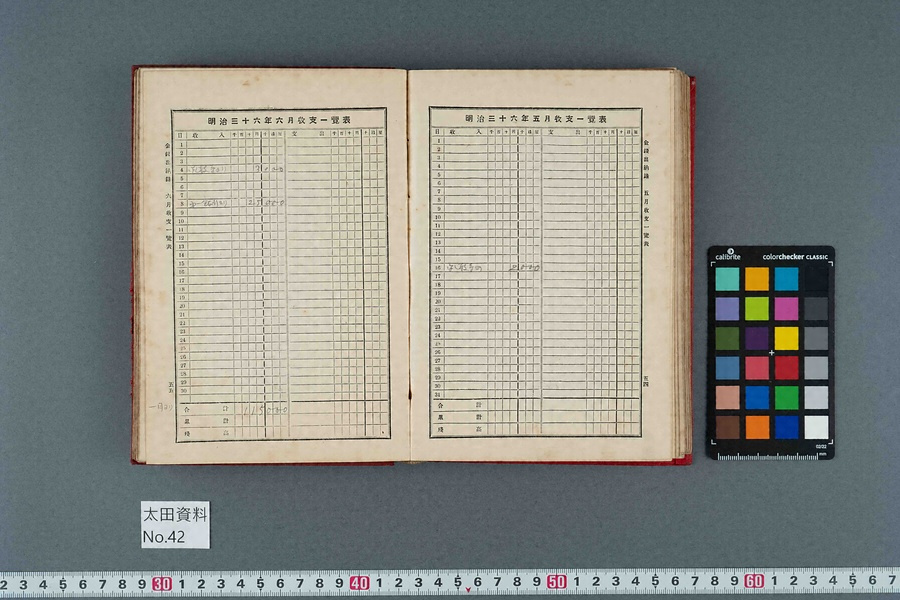 明治三十六年五月收支一覽表
日 收 入 千 百 十 円 十 錢 厘 支 出 千 百 十 円 十 錢 厘
1
2
3
4
5
6
7
8
9
10
11
12
13
14
15
16
17
18
19
20
21
22
23
24
25
26
27
28
29
30
31
合 計
累 計
殘 高
金錢出納錄 五月收支一覽表
五四
明治三十六年六月收支一覽表
日 收 入 千 百 十 円 十 錢 厘 支 出 千 百 十 円 十 錢 厘
1
2
3
4
5
6
7
8
9
10
11
12
13
14
15
16
17
18
19
20
21
22
23
24
25
26
27
28
29
30
合 計
累 計
殘 高
金錢出納錄 六月收支一覽表
五五
calibrite
colorchecker CLASSIC
mm
太田資料
No.42
2 3 4 5 6 7 8 9 30 1 2 3 4 5 6 7 8 9 40 1 2 3 4 5 6 7 8 9 50 1 2 3 4 5 6 7 8 9 60 1 2 3 4 5 6 7